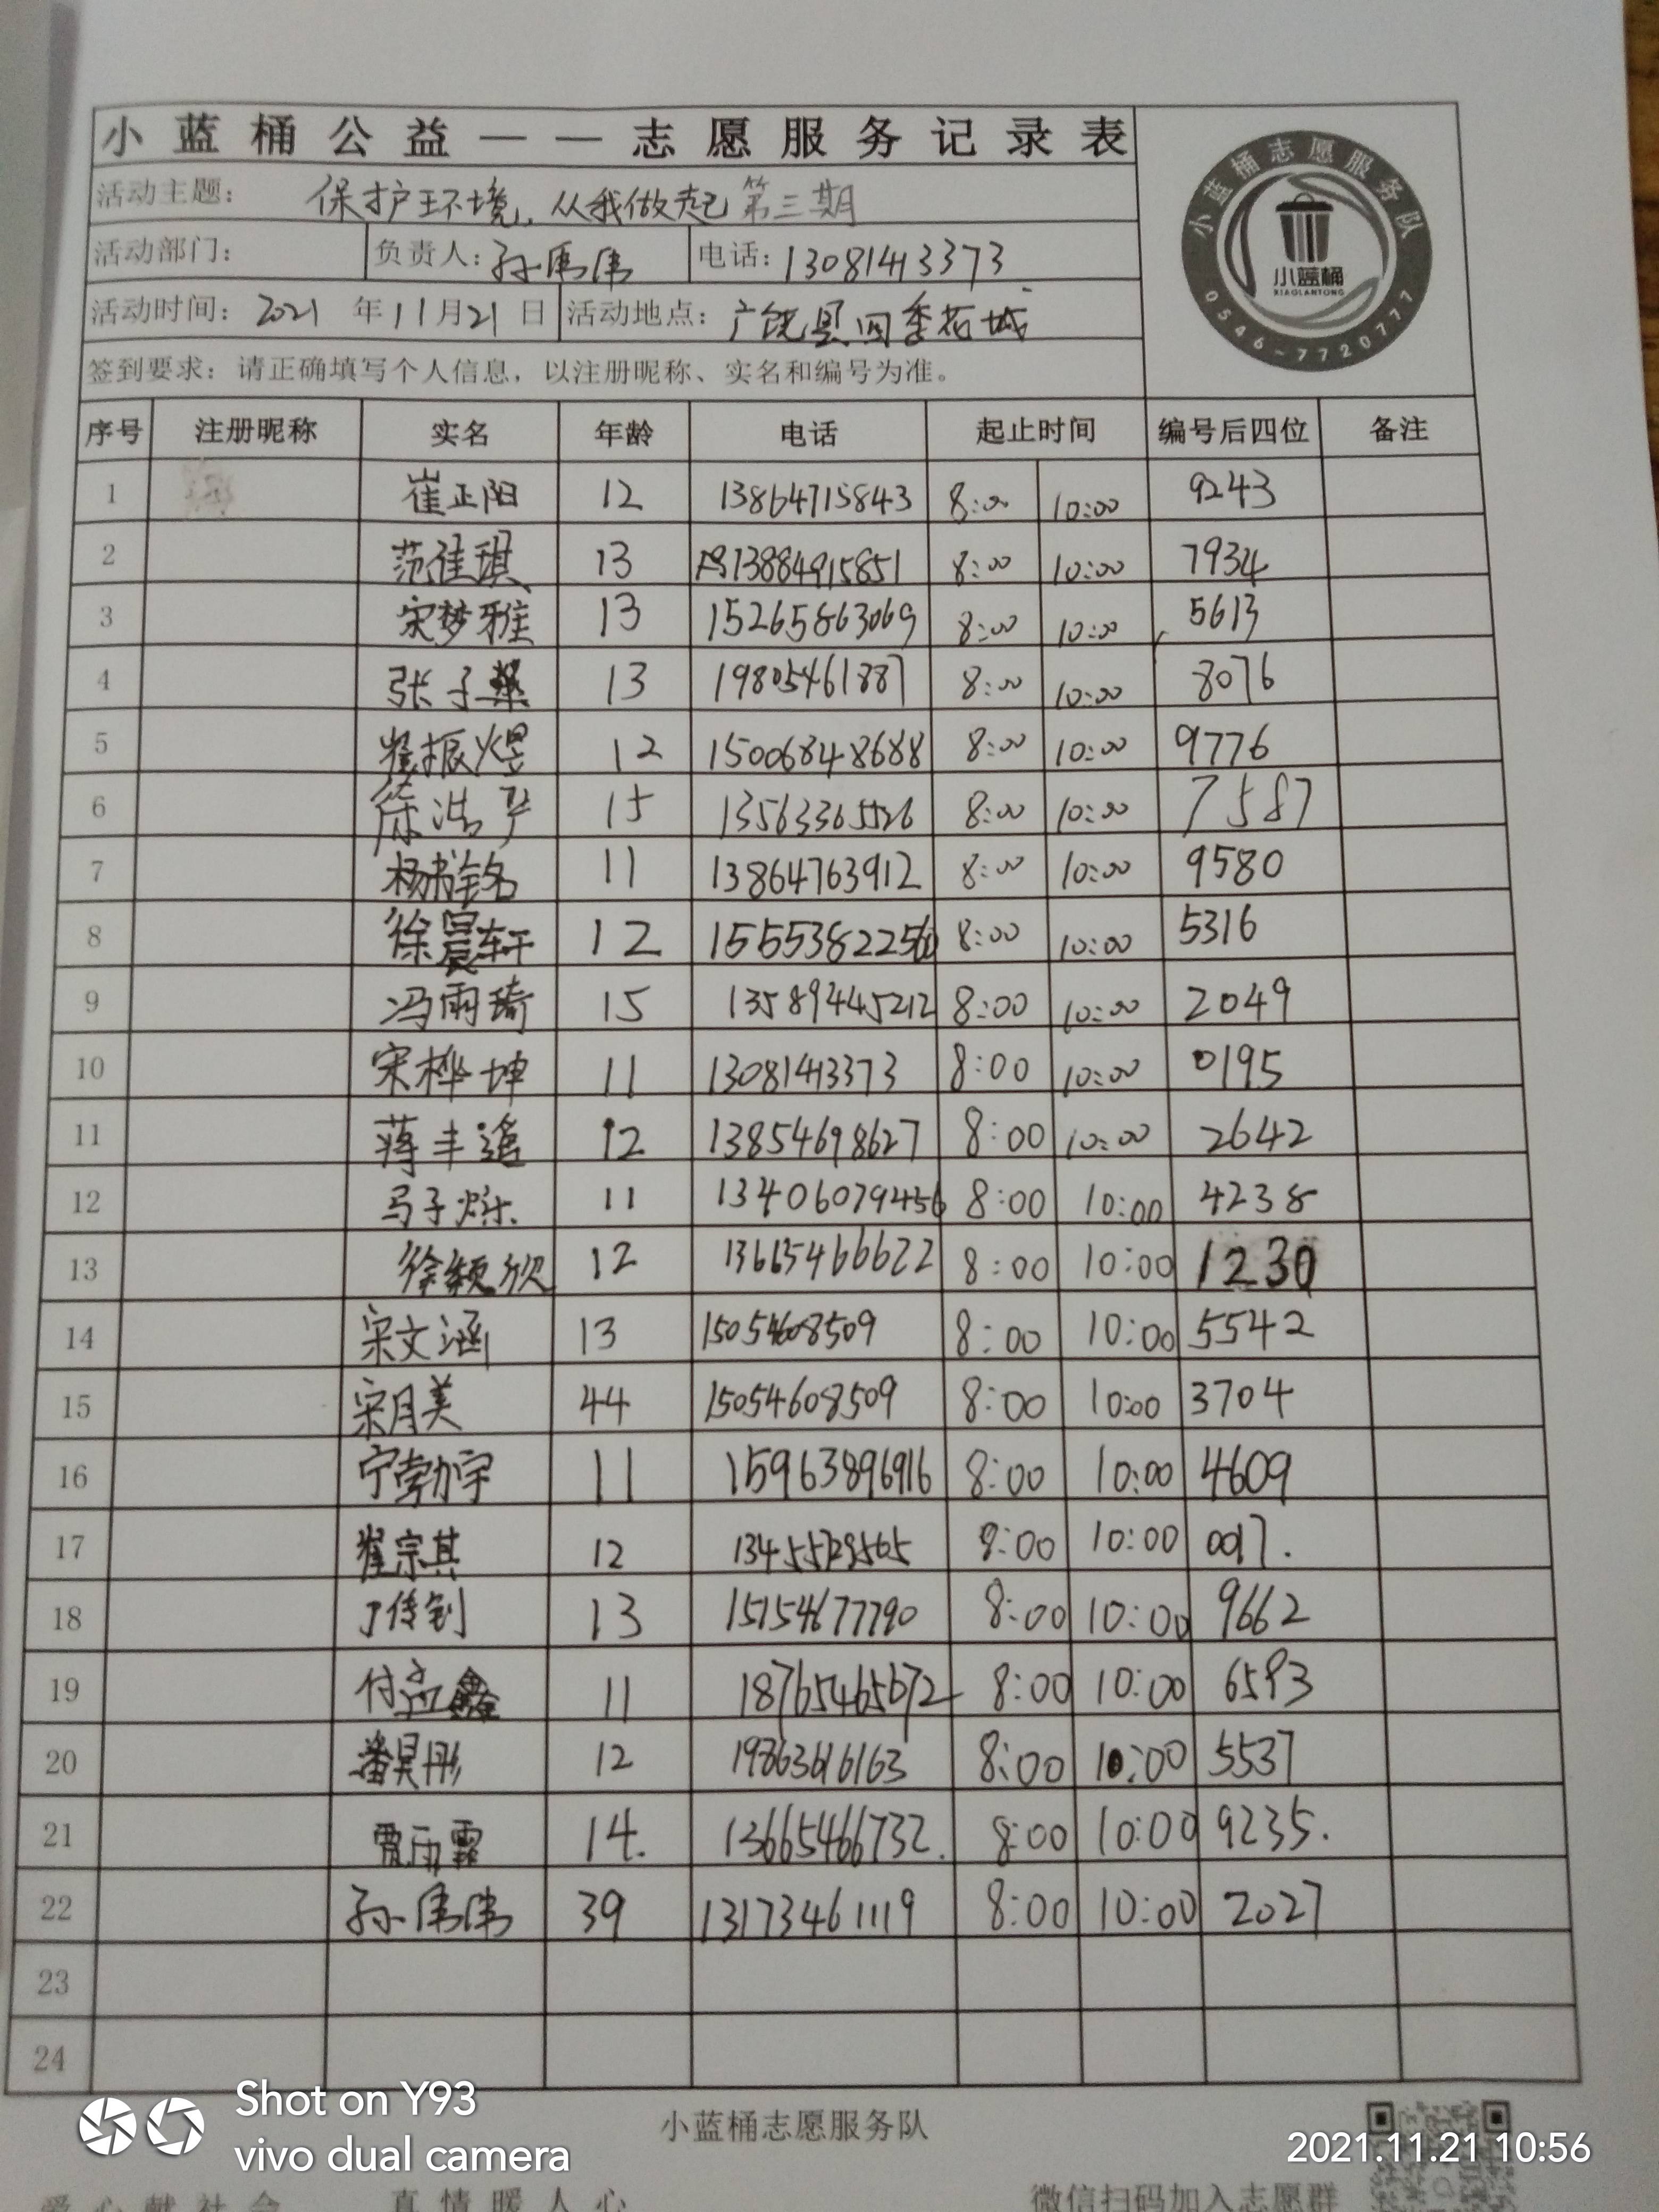 小蓝桶公益——志愿服务记录表
活动主题: 保护环境,从我做起第三期
活动部门: 负责人:孙伟伟 电话:13081413373
活动时间: 2021 年 11 月 21 日 活动地点: 广饶县四季花城
签到要求: 请正确填写个人信息, 以注册昵称、实名和编号为准。
小蓝桶志愿服务队
小蓝桶
XIAOLANTONG
0546-7720777
序号 注册昵称 实名 年龄 电话 起止时间 编号后四位 备注
1 崔正阳 12 13864715843 8:00 10:00 9243
2 范佳琪 13 13884915851 8:00 10:00 7934
3 宋梦雅 13 15265863069 8:00 10:00 5613
4 张子 13 19805461887 8:00 10:00 8076
5 崔振煜 12 15006848688 8:00 10:00 9776
6 徐浩 15 13563365526 8:00 10:00 7587
7 杨书铭 11 13864763912 8:00 10:00 9580
8 徐晨轩 12 8:00 10:00 5316
9 冯雨琦 15 13589445212 8:00 10:00 2049
10 宋桦坤 11 13081413373 8:00 10:00 0195
11 蒋丰遥 12 13854698627 8:00 10:00 2642
12 马子烁 11 13406079456 8:00 10:00 4238
13 徐颖欣 12 13615466622 8:00 10:00 1230
14 宋文涵 13 15054608509 8:00 10:00 5542
15 宋月美 44 15054608509 8:00 10:00 3704
16 宁勃宇 11 15963896916 8:00 10:00 4609
17 崔宗其 12 8:00 10:00 0017.
18 丁传钊 13 15154677790 8:00 10:00 9662
19 付孟鑫 11 18765465672 8:00 10:00 6593
20 昊彤 12 19863616163 8:00 10:00 5537
21 贾雨霏 14. 13665466732. 8:00 10:00 9235.
22 孙伟伟 39 13173461119 8:00 10:00 2027
23
24
小蓝桶志愿服务队
爱心献社会 真情暖人心 微信扫码加入志愿群
Shot on Y93
vivo dual camera
2021.11.21 10:56